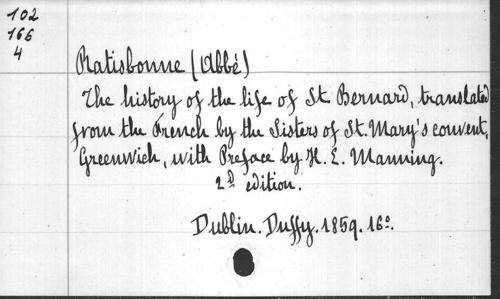 102
166
4
Ratisbonne (Abbé)
The history of the life of St. Bernard, translated
from the French by the Sisters of St. Mary's convent,
Greenwich, with Preface by H. E. Manning.
2D edition.
Dublin. Duffy. 1859. 16o.